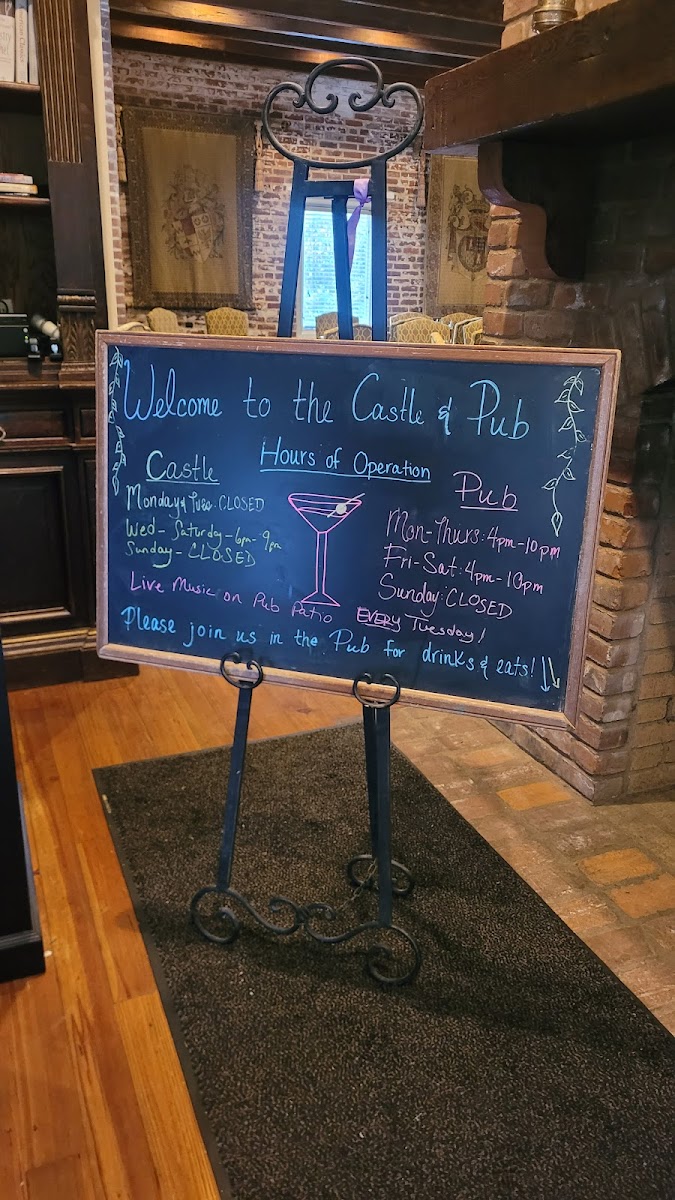 Welcome to the Castle & Pub
Hours of Operation
Castle
Monday & Tues: CLOSED
Wed - Saturday - 6pm - 9pm
Sunday - CLOSED
Pub
Mon-Thurs: 4pm-10pm
Fri-Sat: 4pm-10pm
Sunday: CLOSED
Live Music on Pub Patio EVERY Tuesday!
Please join us in the Pub for drinks & eats!